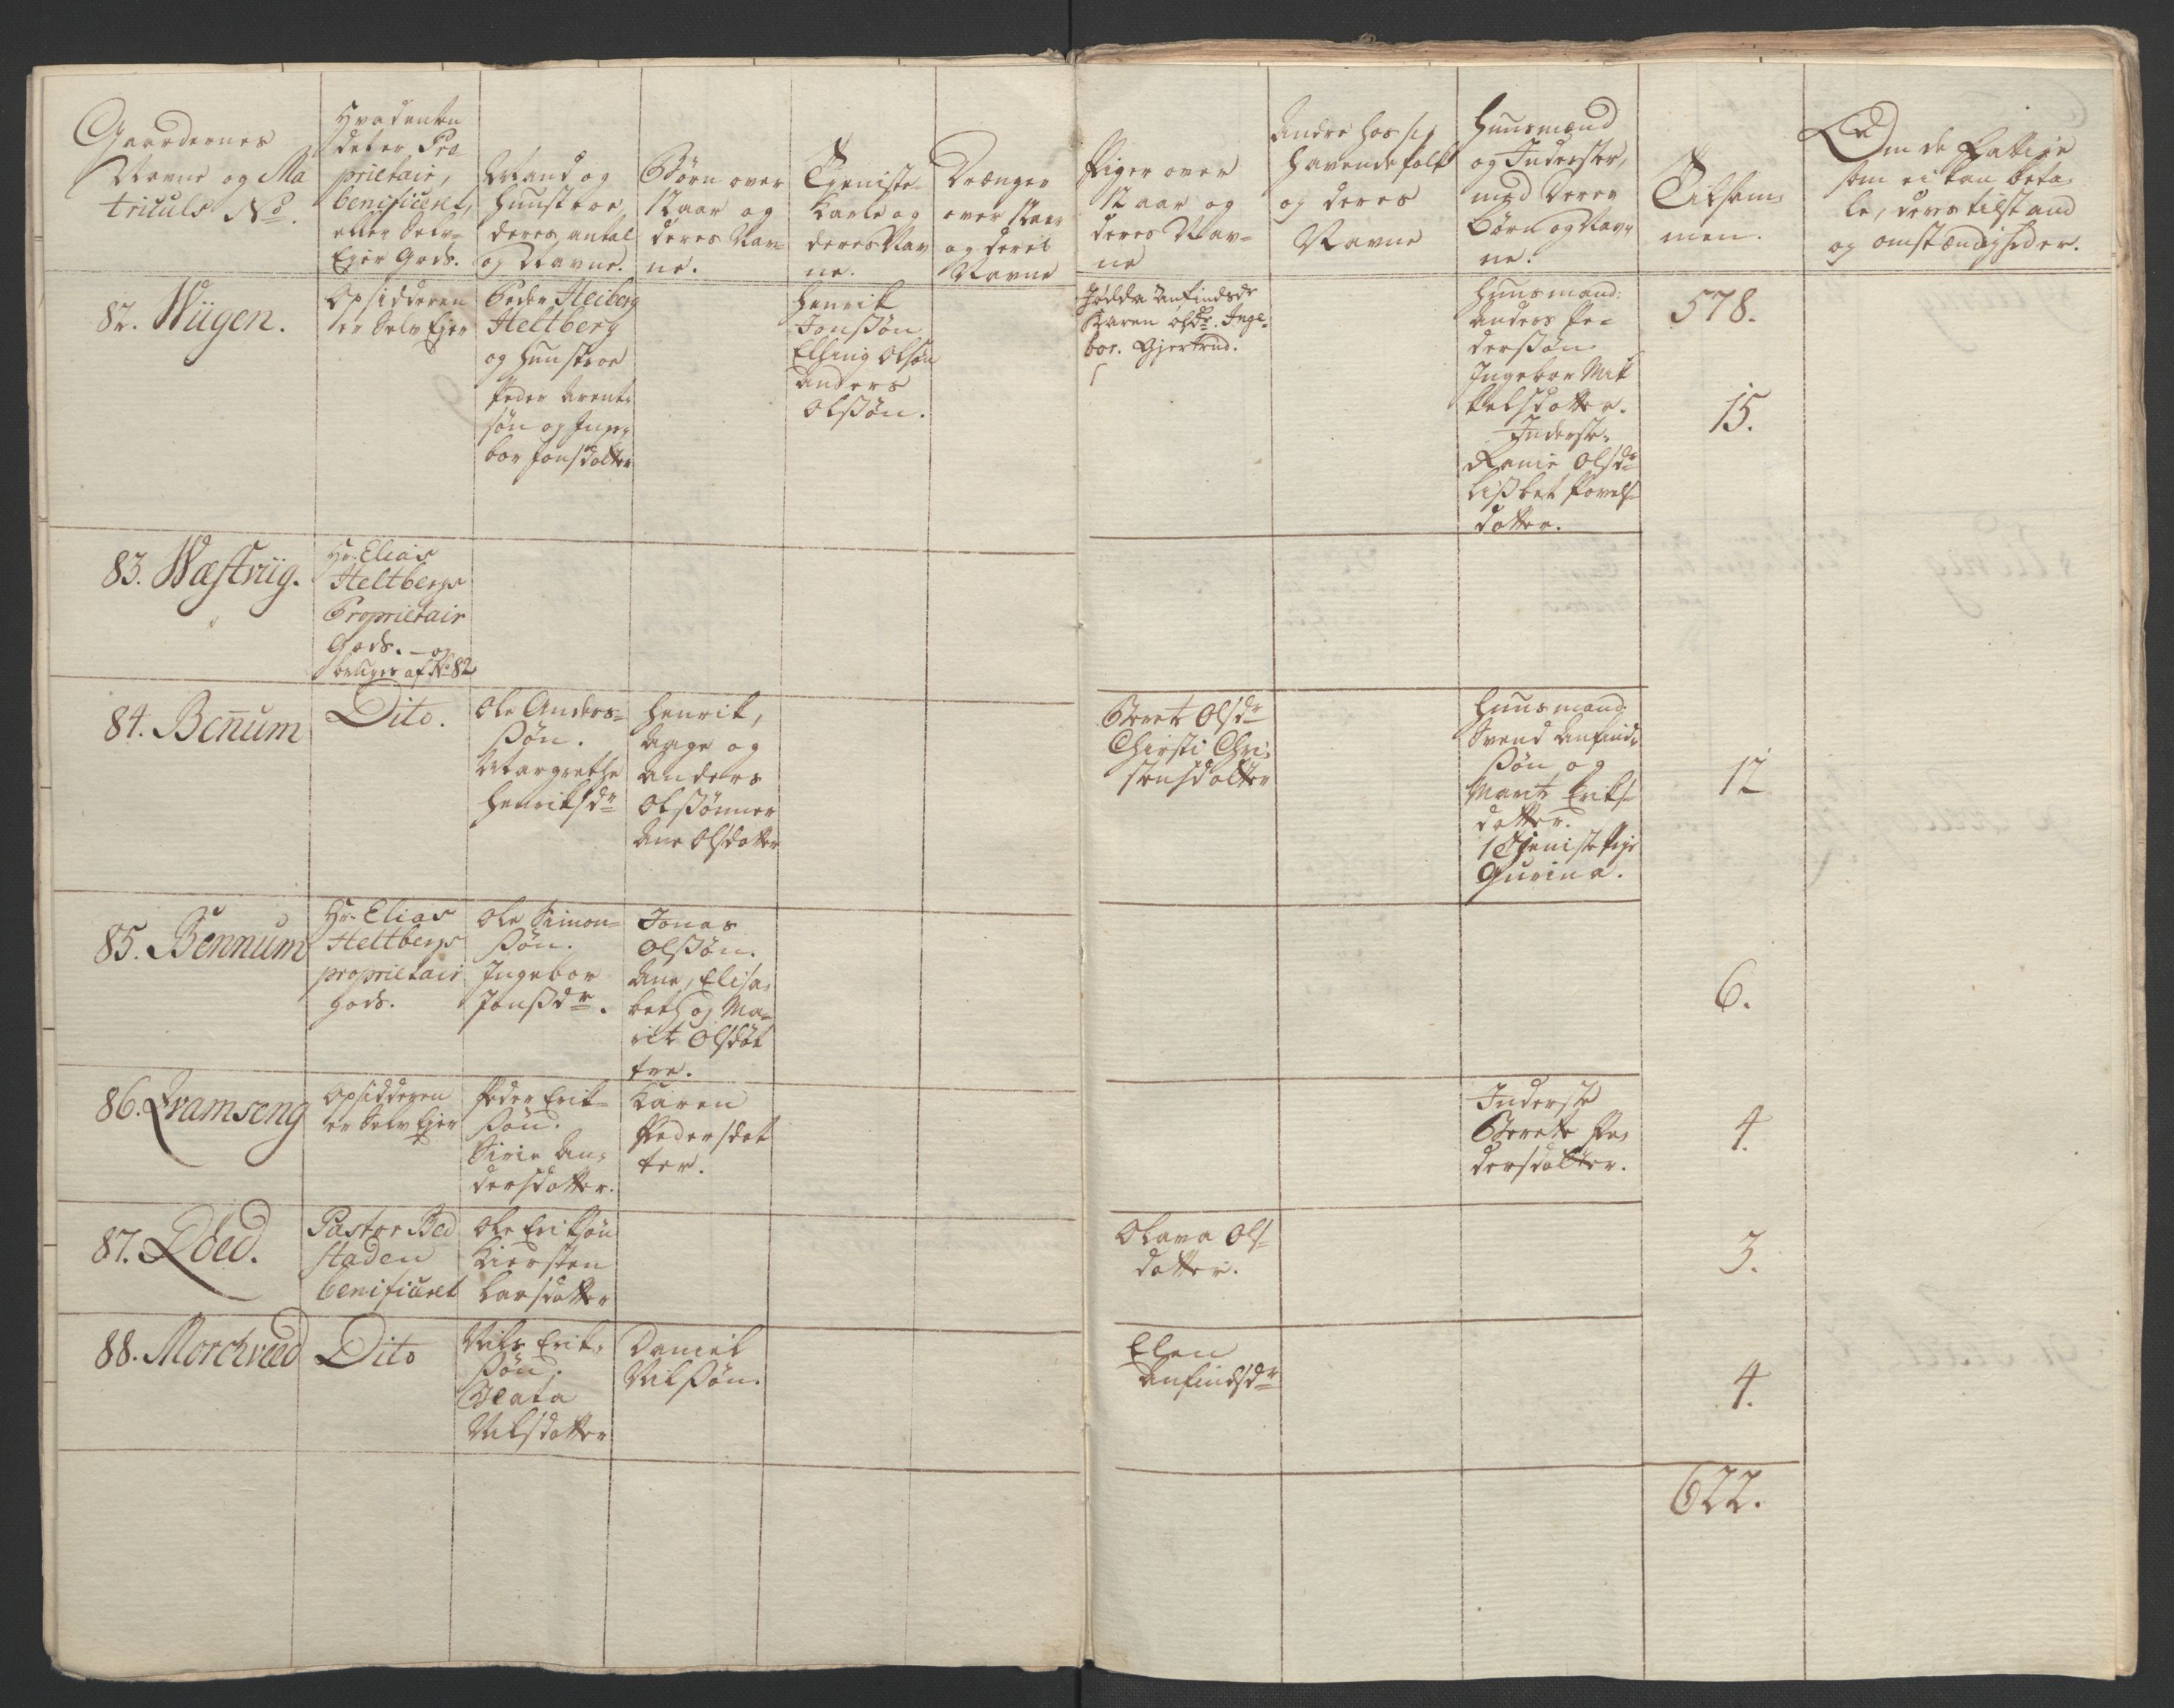 Gaardernes
Navne og Ma
triculs No.
Hvadenten
det er Pro
prietair,
beneficeret,
eller Selv-
Ejer Gods.
Mand og
Huustroe
deres antal
og Navne.
Börn over
12 aar og
deres Nav-
ne.
Tjeniste-
Karle og
deres Nav
ne.
Drænger
over 12 aar
og deres
Navne
Piger over
12 aar og
deres Nav-
ne
Andre hos sig
havende folk
og deres
Navne
Huusmænd
og Inderster,
med deres
Börn og Nav-
ne.
Tilsam-
men.
Om de Fattige
som ei kan beta-
le, deres tilstand
og omstændigheder.
82. Wiigen.
Opsidderen
er Selv Ejer
Peder Heiberg
Heltberg
og Huustroe
Peder Arent-
sön og Inge-
bor Jonsdatter
Henrik
Jonßön
Elling Olsön
Anders
Olßön.
Anfindsdr
Karen Olsdr. Inge-
bor. Gjertrud.
Huusmand:
Anders Pe-
derßön.
Ingebor Mik
kelsdatter.
Inderste.
Ranie Olsdr
Lißbet Povels-
datter.
578.
15.
83. Wæstriig.
Hr. Elias
Heltbergs
Proprietair
Gods. - og
bruges af No. 82
84. Benum
Dito.
Ole Anders-
ßön.
Margrethe
Henriksdr
Henrik,
Aage og
Anders
Olßönner
Ane Olsdatter
Beret Olsdr
Chirsti Chri-
stensdatter
Huusmand:
Svend Anfind-
ßön og
Marit Eriks-
datter.
1 Tjeniste Pige
Gurina.
12
85. Bennum
Hr. Elias
Heltbergs
proprietair
gods.
Ole Simon-
ßön.
Ingebor
Jonßdr.
Jonas
Olßön.
Ane, Elisa-
beth og Ma-
rit Olsdöt
tre.
6.
86. Qramseng
Opsidderen
er Selv Ejer
Peder Erik-
ßön.
Sirie An-
dersdatter.
Karen
Pedersdat
ter.
Inderste
Berete Pe-
dersdatter.
4.
87.
Pastor Bed
staden
benificeret
Ole Eriksön
Kiersten
Larsdatter
Olava Ols-
datter.
3.
88. Morchved
Dito
Nils Erik-
ßön.
Beata
Nilsdatter
Daniel
Nilßön.
Elen
Anfindsdr
4.
622.